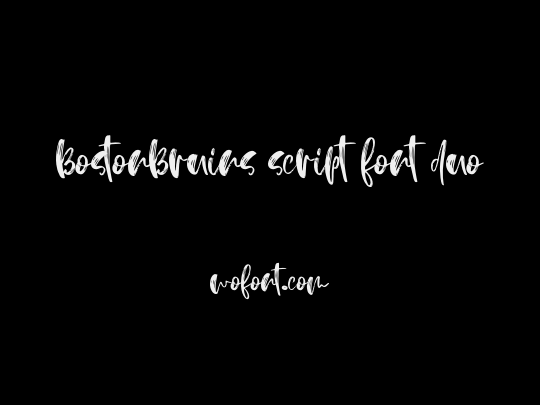 BostonBruins script font duo
wofont.com